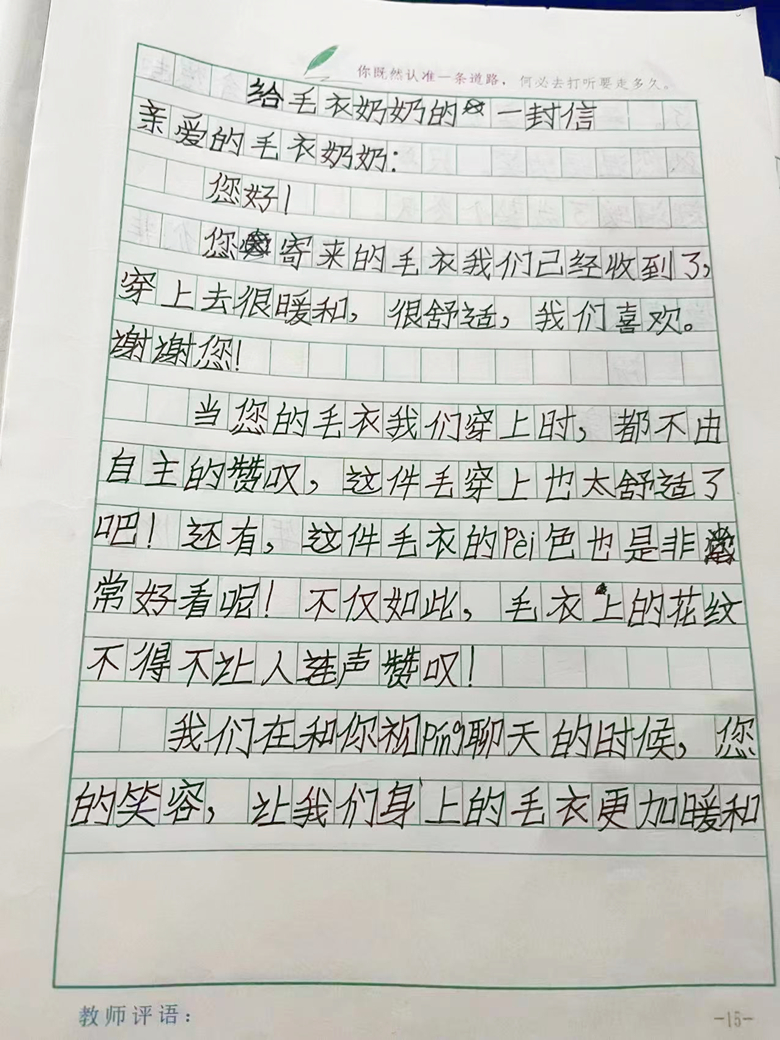 你既然认准一条道路，何必去打听要走多久。
给毛衣奶奶的一封信
亲爱的毛衣奶奶：
您好！
您寄来的毛衣我们已经收到了，
穿上去很暖和，很舒适，我们喜欢。
谢谢您！
当您的毛衣我们穿上时，都不由
自主的赞叹，这件毛穿上也太舒适了
吧！还有，这件毛衣的Pèi色也是非
常好看呢！不仅如此，毛衣上的花纹
不得不让人连声赞叹！
我们在和你视Píng聊天的时候，您
的笑容，让我们身上的毛衣更加暖和
教师评语：
-15-